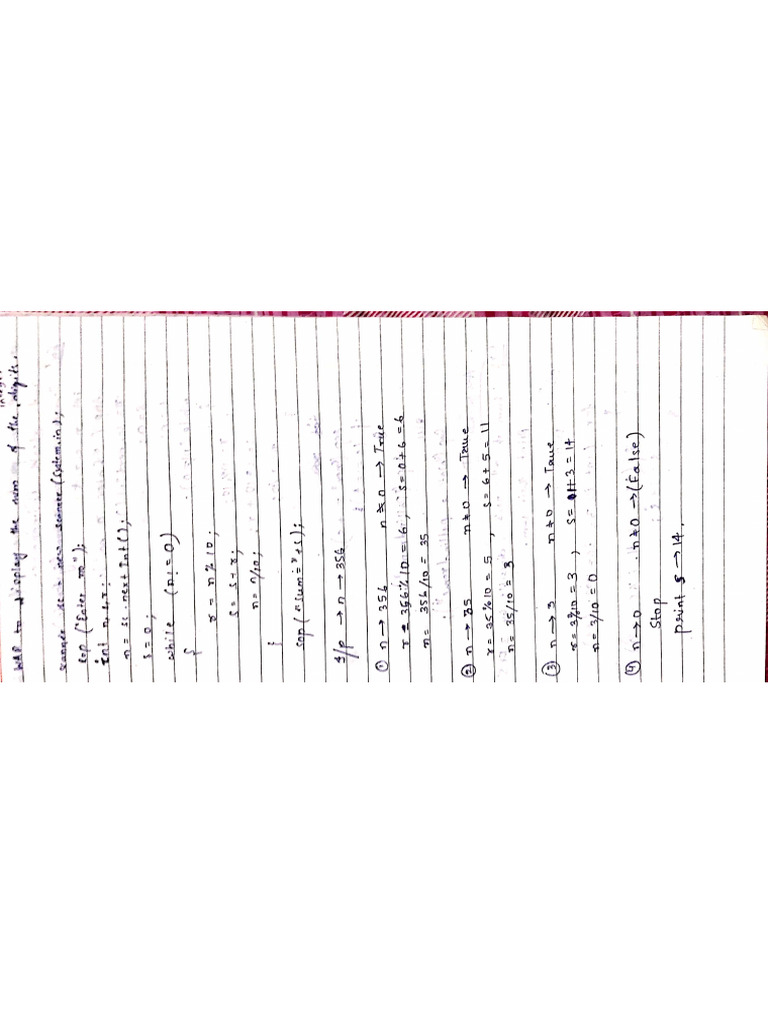 integer
WAP to display the sum of the digits.
scanner sc = new scanner (System.in);
sop ("Enter no");
Int n, s, r;
n = sc.next Int ();
s = 0;
while (n! = 0)
{
r = n % 10;
s = s + r;
n = n/10;
}
sop ("sum=" + s);
I/p → n → 356
① n → 356 n ≠ 0 → True
r = 356 % 10 = 6, s = 0 + 6 = 6
n = 356/10 = 35
② n → 35 n ≠ 0 → True
r = 35 % 10 = 5, s = 6 + 5 = 11
n = 35/10 = 3
③ n → 3 n ≠ 0 → True
r = 3%10 = 3, s = 11 + 3 = 14
n = 3/10 = 0
④ n → 0 n ≠ 0 → (False)
Stop
print s → 14.